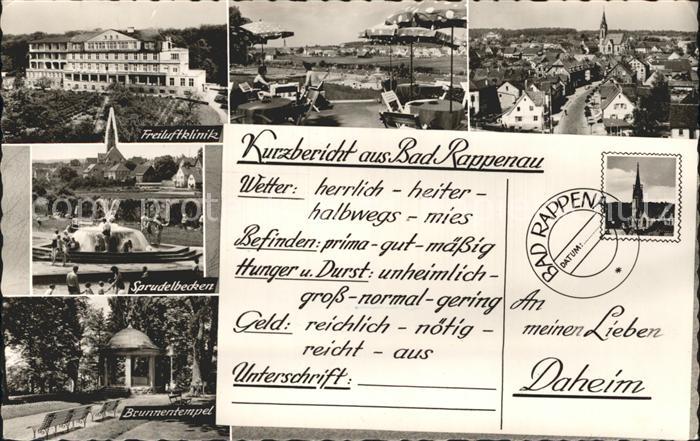 Freiluftklinik
Sprudelbecken
Brunnentempel
Kurzbericht aus Bad Rappenau
Wetter: herrlich - heiter -
halbwegs - mies
Befinden: prima - gut - mäßig
Hunger u. Durst: unheimlich -
groß - normal - gering
Geld: reichlich - nötig -
reicht - aus
Unterschrift:
BAD RAPPENA
DATUM:
An
meinen Lieben
Daheim